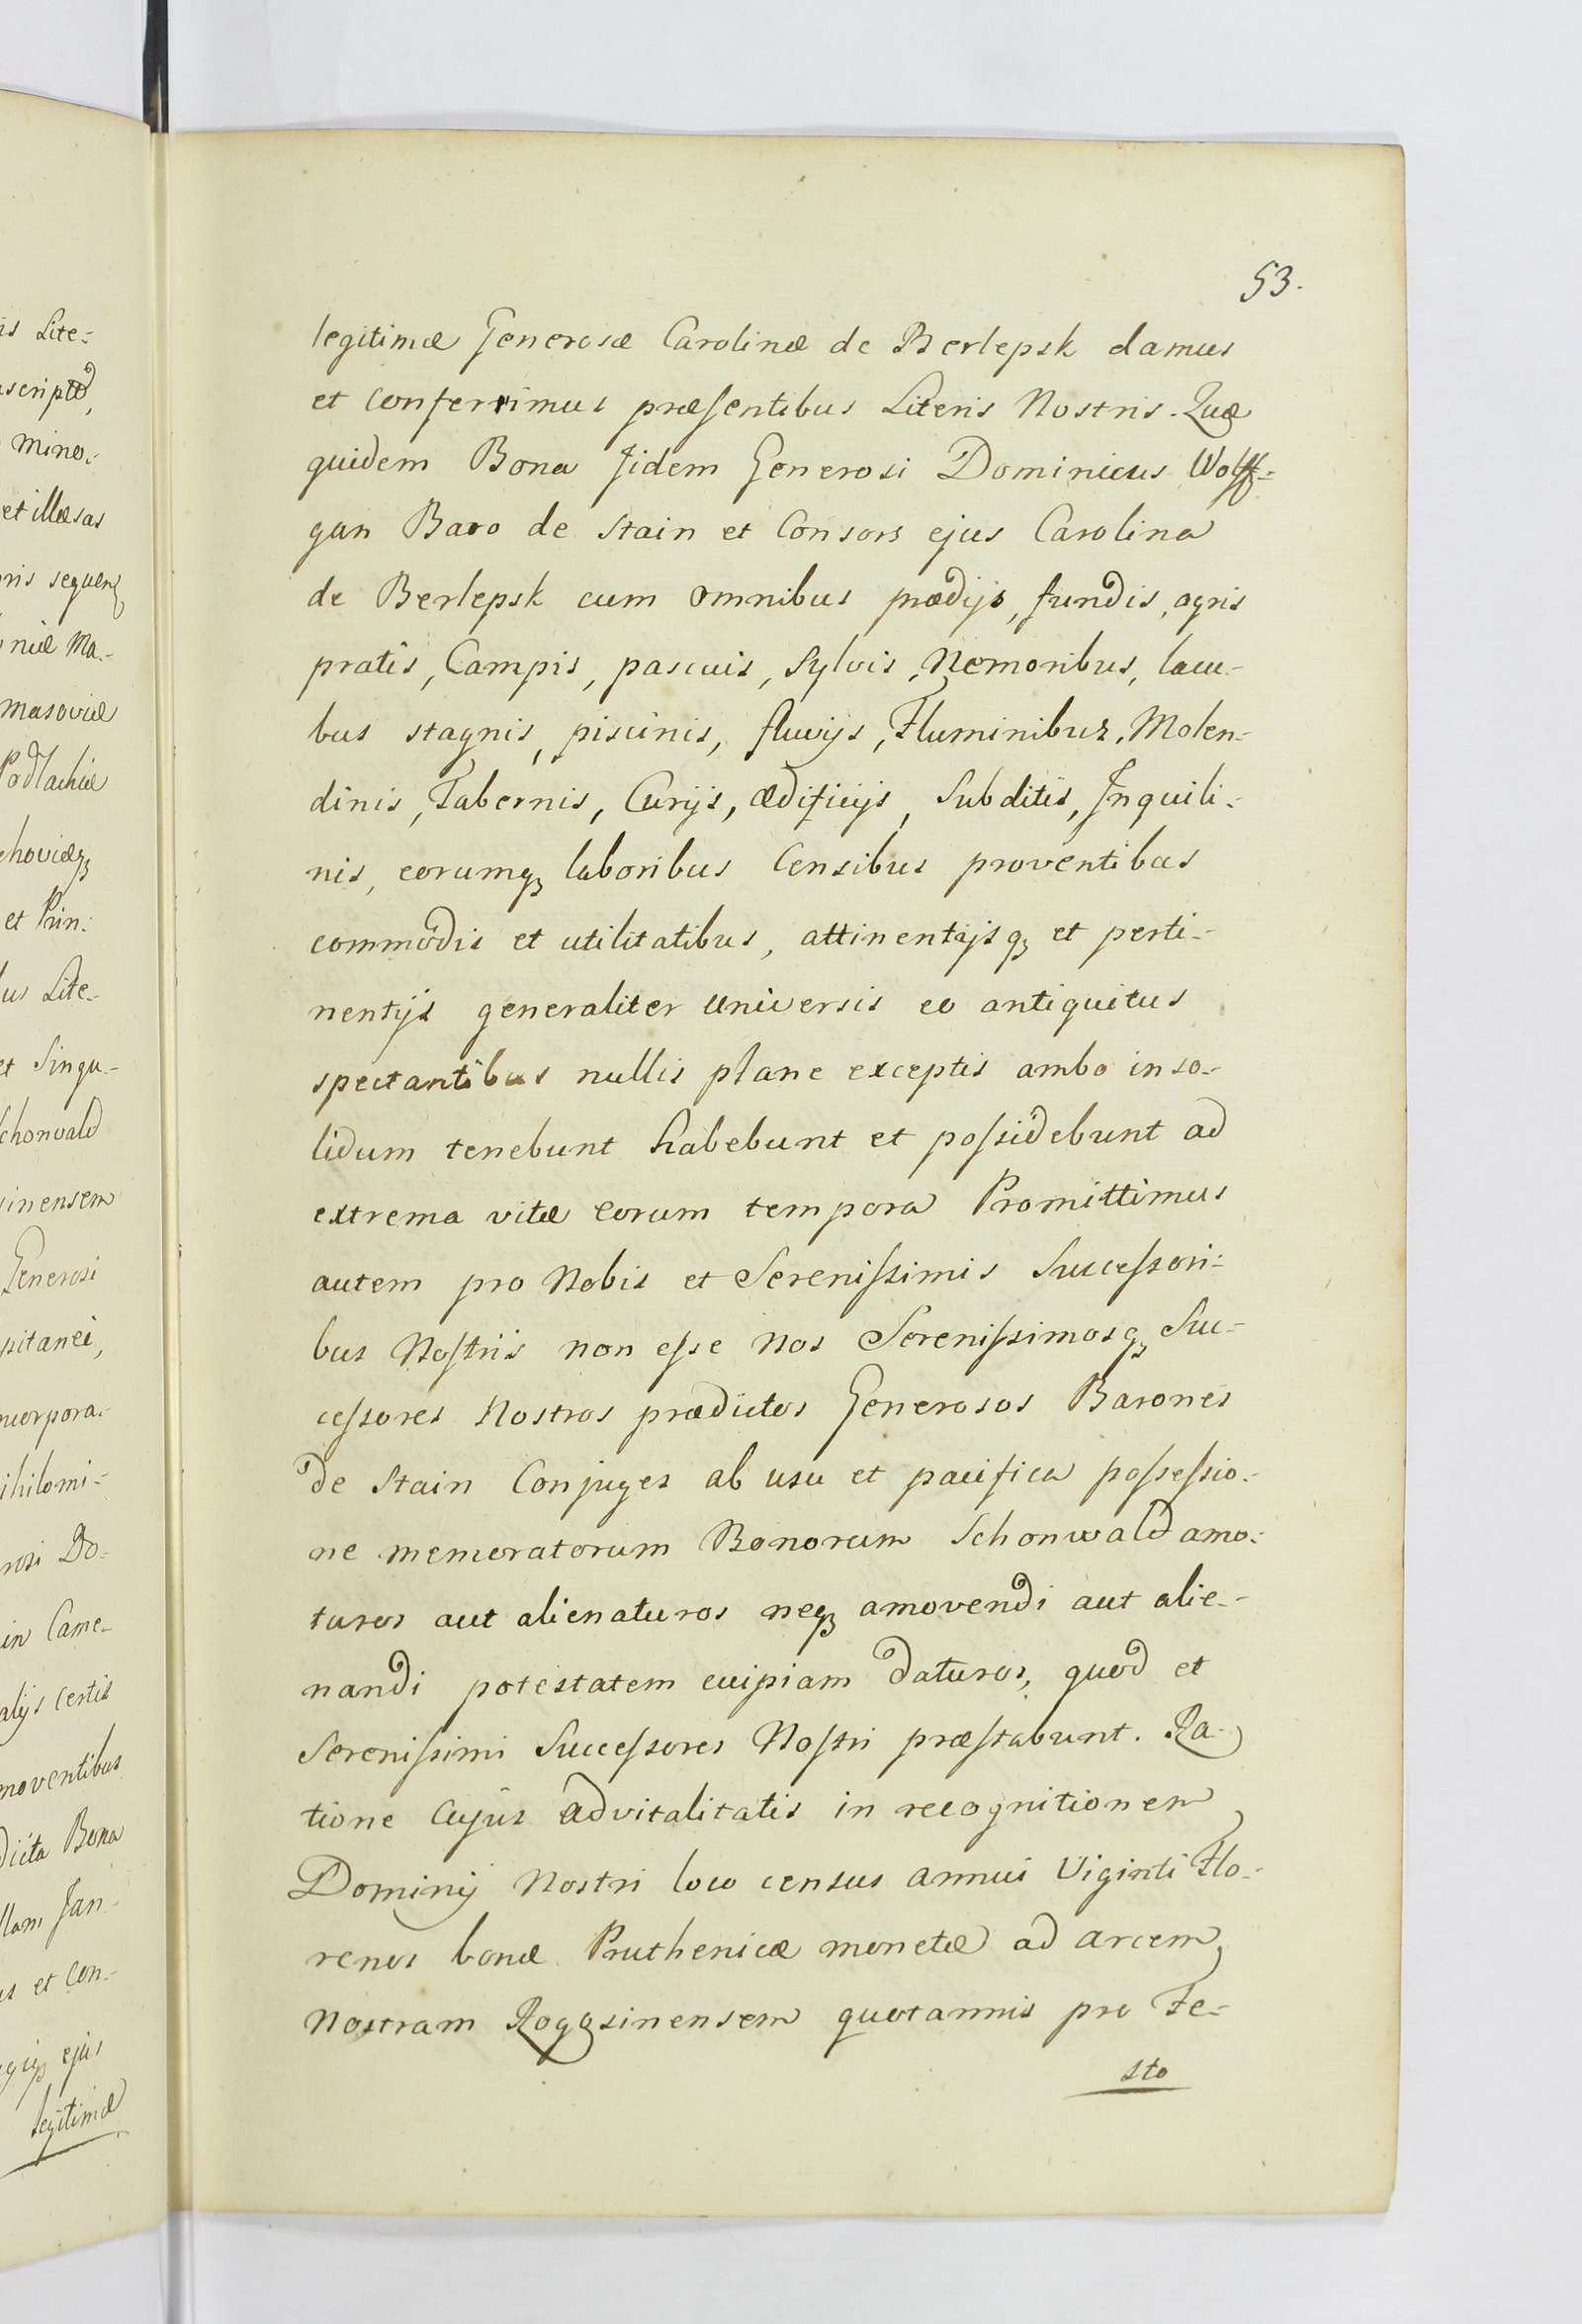 53.
legitimæ Generosæ Carolinæ de Berlepsk damus
et conferrimus præsentibus Literis Nostris. Quæ
quidem Bona Jidem Generosi Dominicus Wolff-
gan Baro de Stain et Consors ejus Carolina
de Berlepsk cum omnibus prædijs, fundis, agris
pratis, Campis, pascuis, Sylvis, Nemoribus, lacu-
bus stagnis, piscinis, fluvijs, Fluminibus, Molen-
dinis, Tabernis, Curijs, ædificijs, Subditis, Jnquili-
nis, eorumq₃ laboribus Censibus proventibus
commodis et utilitatibus, attinentijsq₃ et perti-
nentijs generaliter universis eo antiquitus
spectantibus nullis plane exceptis ambo in so-
lidum tenebunt habebunt et possidebunt ad
extrema vitæ eorum tempora Promittimus
autem pro Nobis et Serenissimis Successori-
bus Nostris non esse Nos Serenissimosq₃ Suc-
cessores Nostros prædictos Generosos Barones
de Stain Conjuges ab usu et pacifica possessio-
ne memoratorum Bonorum Schonwald amo-
turos aut alienaturos neq₃ amovendi aut alie-
nandi potestatem cuipiam daturos, quod et
Serenissimi Successores Nostri præstabunt. Ra-
tione Cujus advitalitatis in recognitionem
Dominij Nostri loco census annui Viginti Flo-
renos bonæ Pruthenicæ monetæ ad arcem
Nostram Rogosinensem quotannis pro Fe-
sto
is Lite-
mino-
et illæsas
ris sequen
niæ Ma-
Masoviæ
Podlachiæ
choviæq₃
et Prin-
us Lite-
et Singu-
chonvald
sinensem
Generosi
pitanei,
ncorpora-
ihilomi-
rosi Do-
in Came-
alijs certis
moventibus
dicta Bona
llam Jan-
us et Con-
ejus
legitimæ